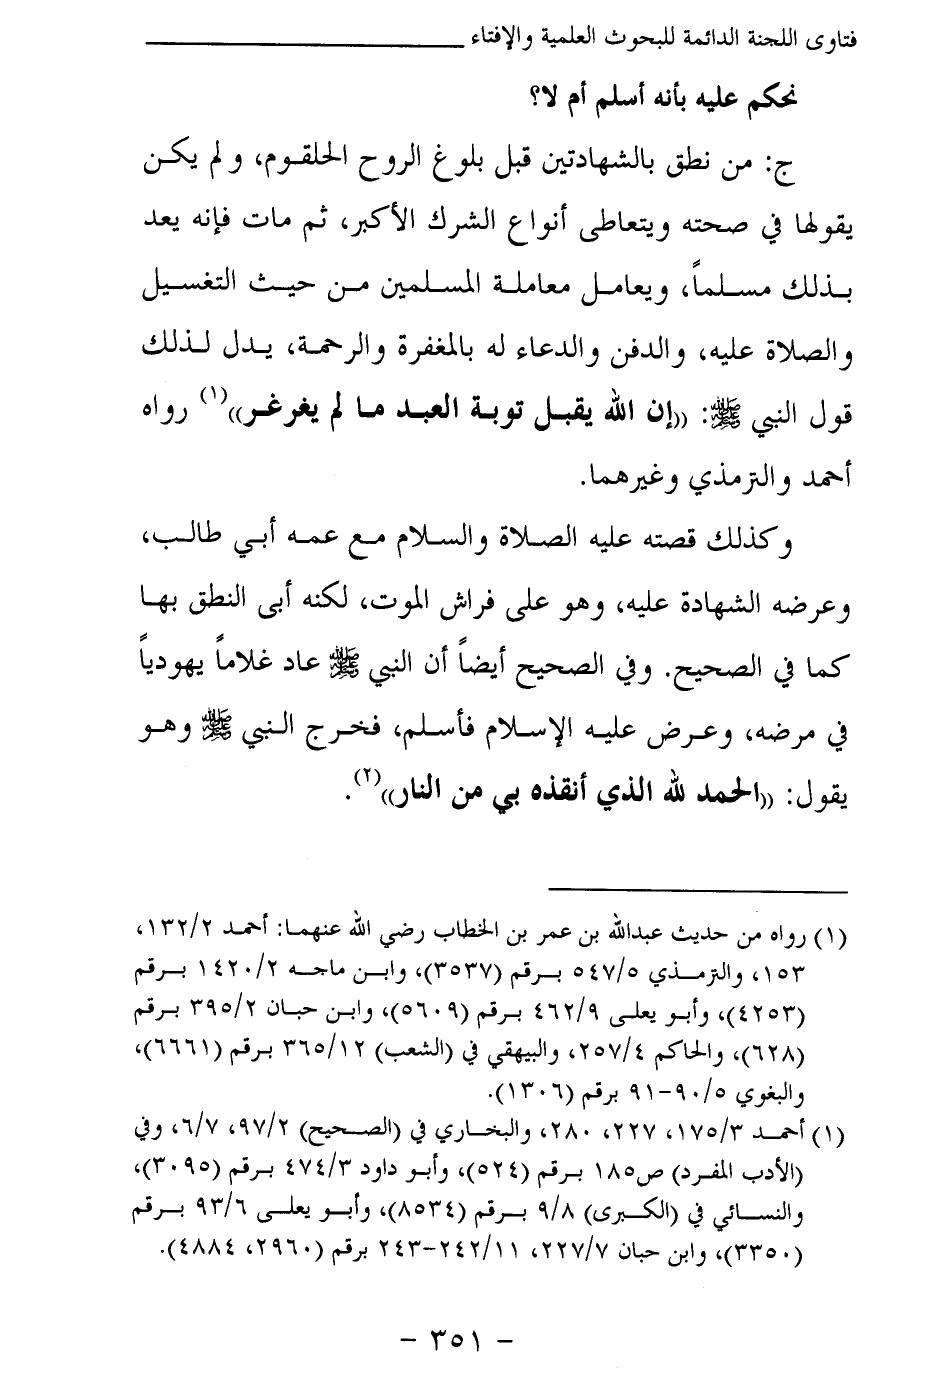 فتاوى اللجنة الدائمة للبحوث العلمية والإفتاء
نحكم عليه بأنه أسلم أم لا؟
ج: من نطق بالشهادتين قبل بلوغ الروح الحلقوم، ولم يكن
يقولها في صحته ويتعاطى أنواع الشرك الأكبر، ثم مات فإنه يعد
بذلك مسلماً، ويعامل معاملة المسلمين من حيث التغسيل
والصلاة عليه، والدفن والدعاء له بالمغفرة والرحمة، يدل لذلك
قول النبي ﷺ: ((إن الله يقبل توبة العبد ما لم يغرغر))(١) رواه
أحمد والترمذي وغيرهما.
وكذلك قصته عليه الصلاة والسلام مع عمه أبي طالب،
وعرضه الشهادة عليه، وهو على فراش الموت، لكنه أبى النطق بها
كما في الصحيح. وفي الصحيح أيضاً أن النبي ﷺ عاد غلاماً يهودياً
في مرضه، وعرض عليه الإسلام فأسلم، فخرج النبي ﷺ وهو
يقول: ((الحمد لله الذي أنقذه بي من النار))(٢).
(١) رواه من حديث عبدالله بن عمر بن الخطاب رضي الله عنهما: أحمد ١٣٢/٢،
١٥٣، والترمذي ٥٤٧/٥ برقم (٣٥٣٧)، وابن ماجه ١٤٢٠/٢ برقم
(٤٢٥٣)، وأبو يعلى ٤٦٢/٩ برقم (٥٦٠٩)، وابن حبان ٣٩٥/٢ برقم
(٦٢٨)، والحاكم ٢٥٧/٤، والبيهقي في (الشعب) ٣٦٥/١٢ برقم (٦٦٦١)،
والبغوي ٩٠/٥-٩١ برقم (١٣٠٦).
(١) أحمد ١٧٥/٣، ٢٢٧، ٢٨٠، والبخاري في (الصحيح) ٩٧/٢، ٦/٧، وفي
(الأدب المفرد) ص١٨٥ برقم (٥٢٤)، وأبو داود ٤٧٤/٣ برقم (٣٠٩٥)،
والنسائي في (الكبرى) ٩/٨ برقم (٨٥٣٤)، وأبو يعلى ٩٣/٦ برقم
(٣٣٥٠)، وابن حبان ٢٢٧/٧، ٢٤٢/١١-٢٤٣ برقم (٢٩٦٠، ٤٨٨٤).
- ٣٥١ -